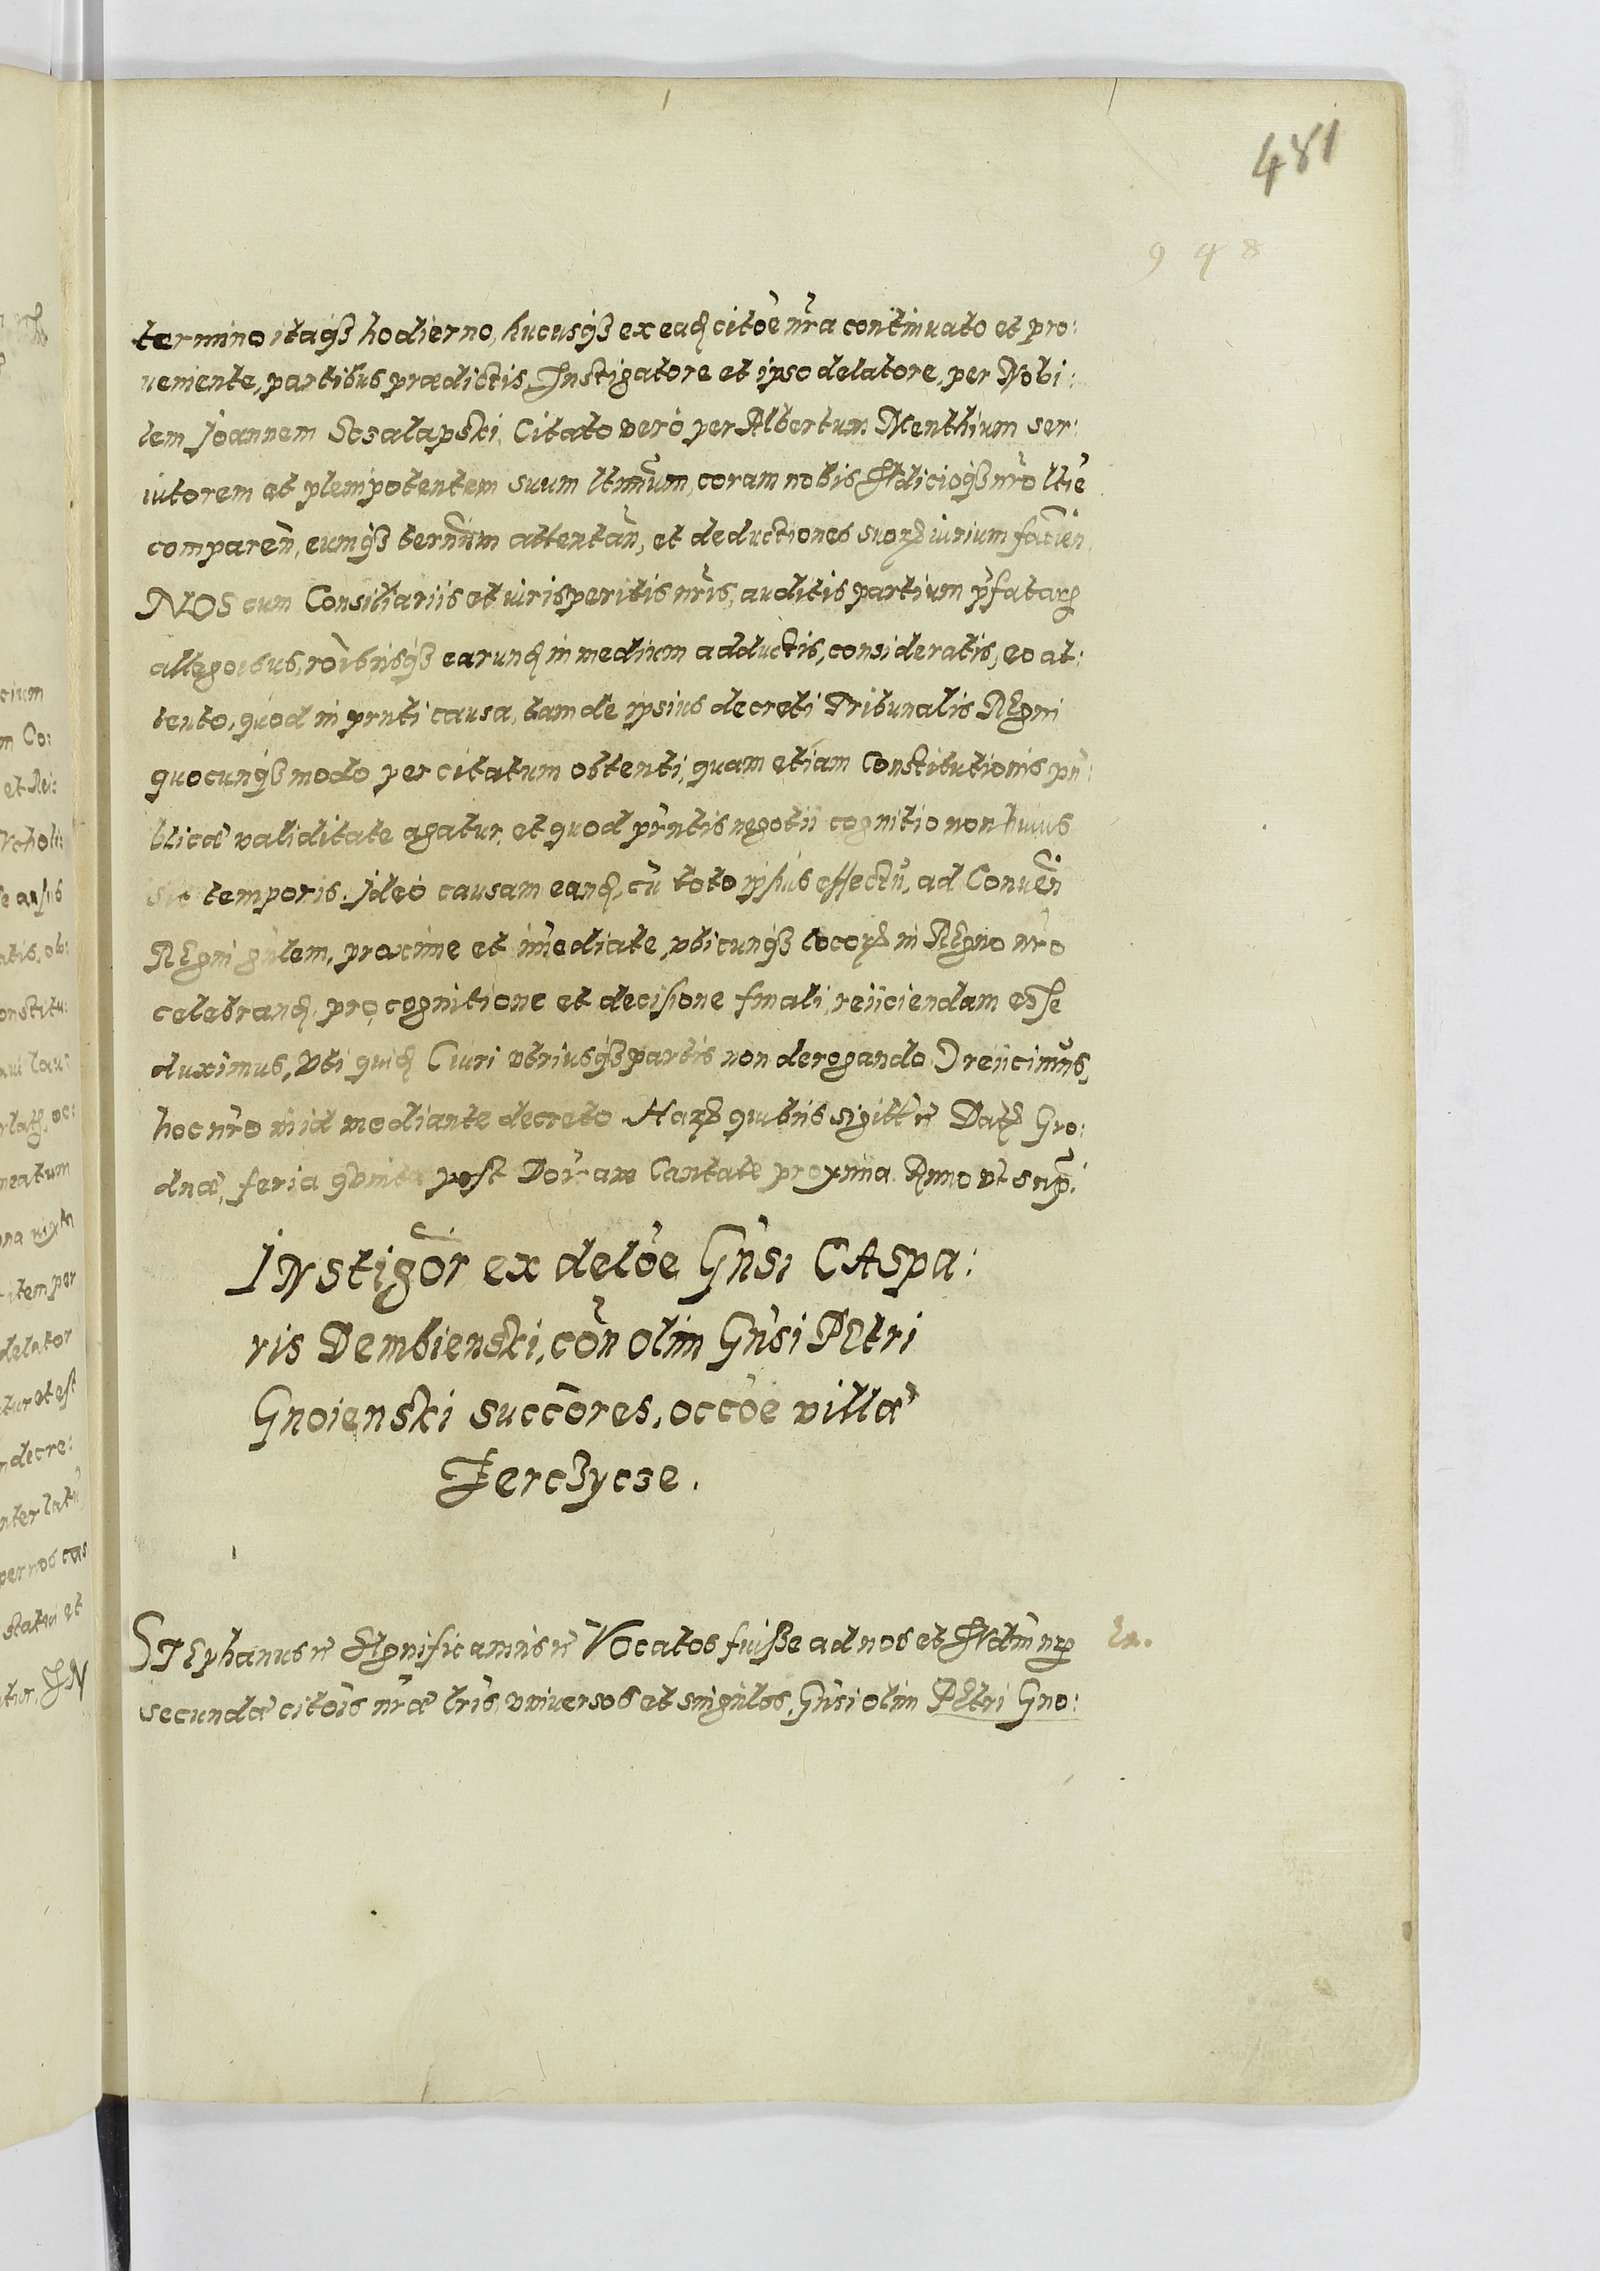 481
948
termino itaqꝫ hodierno, hucusqꝫ ex eadꝫ citoẽ nr̃a continuato et pro:
ueniente, partibus prædictis, Instigatore et ipso delatore, per Nobi:
lem Joannem Sczalapski, Citato verò per Albertum Menthium ser:
uitorem et plenipotentem suum ltimũm, coram nobis Iudicioqꝫ nrõ ltiẽ
comparen̄, eumqꝫ termĩnm attentan̄, et deductiones suorꝫ iurium facien̄,
NOS cum Consiliariis et iurisperitis nrĩs, auditis partium pr̃fatarꝫ
allegoĩbus, roĩbusqꝫ earundꝫ in medium adductis, consideratis, eo at:
tento, quod in prñti causa, tam de ipsius decreti Tribunalis REgni
quocunqꝫ modo per citatum obtenti, quam etiam Constitutionis pu:
blicæ validitate agatur, et quod prñtis negotii cognitio non huius
sit temporis. Jdeò causam eandꝫ, cũ toto ipsius effectũ, ad Conuen̄
REgni gñlem, proxime et im̃ediate, vbicunqꝫ locorꝫ in REgno nrõ
celebrandꝫ, pro cognitione et decisione finali, reiiciendam esse
duximus, Vti quidꝫ (iuri vtriusqꝫ partis non derogando) reiicimus,
hoc nrõ mediante decreto Harꝫ quibus sigill̃ Datꝫ Gro:
dnæ, feria quinta post Doĩcam Cantate proxima Anno vt supꝫ.
INstigor̃ ex deloẽ Gñsi CAspa:
ris Dembienski, coñ olim Gñsi PEtri
Gnoienski succõres, occoẽ villæ
Jerczycze.
STEphanus Significamus Vocatos fuisse ad nos et Iud nr̃
secundæ citoĩs nrǣ lrĩs, vniversos et singulos, Gñsi olim PEtri Gno: